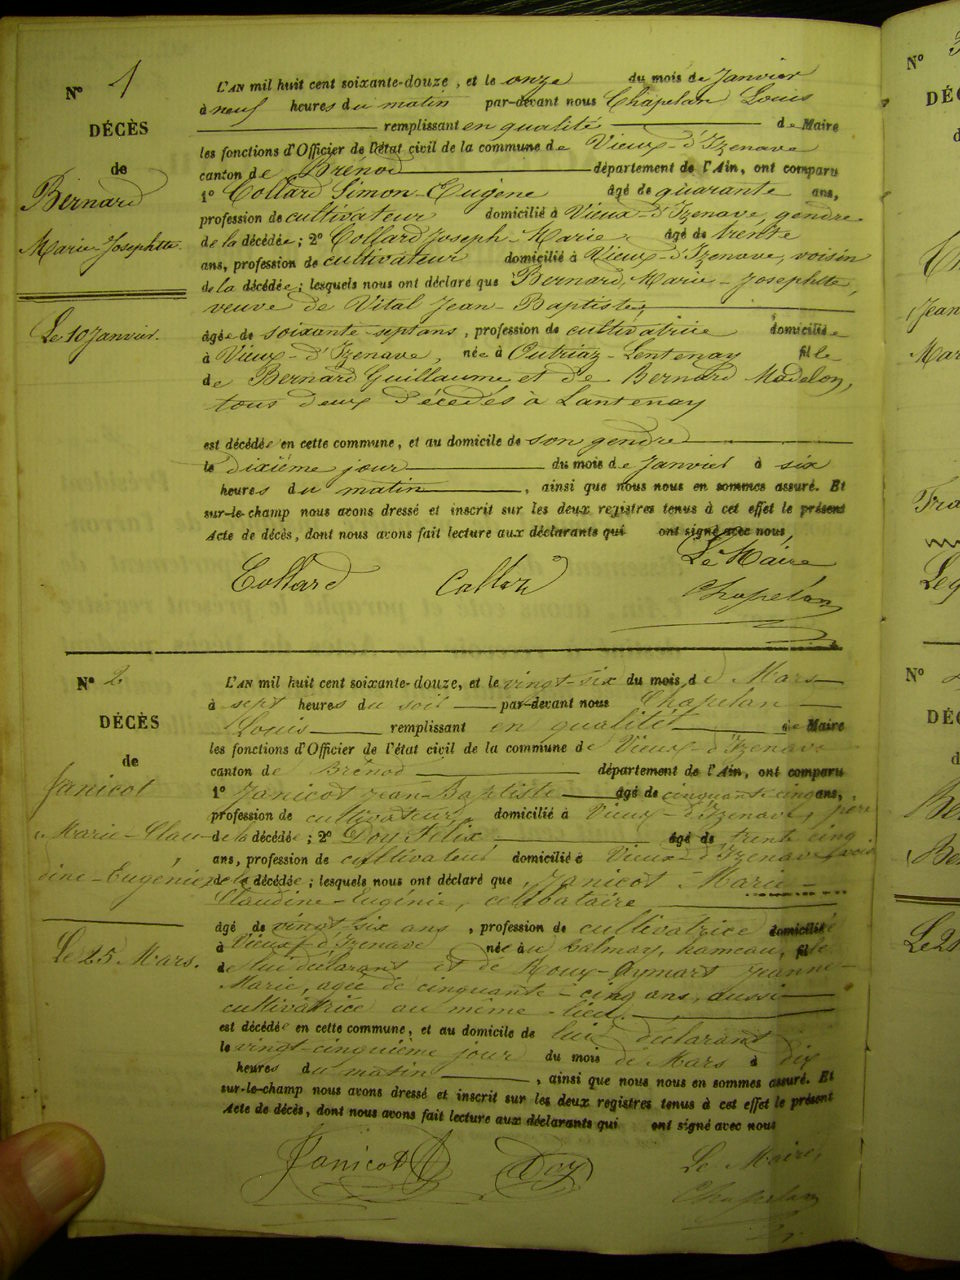 N° 1
DÉCÈS
de
Bernard
Marie-Josephte
Le 10 Janvier.
L'AN mil huit cent soixante-douze, et le onze du mois de Janvier
à neuf heures du matin par-devant nous Chapelan Louis
remplissant en qualité de Maire
les fonctions d'Officier de l'état civil de la commune de Vieux-d'Izenave
canton de Brénod département de l'Ain, ont comparu
1° Collard Simon-Eugène âgé de quarante ans,
profession de cultivateur domicilié à Vieux-d'Izenave, gendre
de la décédée; 2° Collard Joseph-Marie âgé de trente
ans, profession de cultivateur domicilié à Vieux-d'Izenave, voisin
de la décédée; lesquels nous ont déclaré que Bernard, Marie-Josephte,
veuve de Vital Jean-Baptiste,
âgée de soixante-sept ans, profession de cultivatrice domiciliée
à Vieux-d'Izenave, née à Outriaz-Lentenay fille
de Bernard Guillaume et de Bernard Madelon,
tous deux décédés à Lantenay
est décédée en cette commune, et au domicile de son gendre
le dixième jour du mois de Janvier à six
heures du matin, ainsi que nous nous en sommes assuré. Et
sur-le-champ nous avons dressé et inscrit sur les deux registres tenus à cet effet le présent
Acte de décès, dont nous avons fait lecture aux déclarants qui ont signé avec nous
Le Maire
Collard
Chapelan
N° 2
DÉCÈS
de
Janicot
Marie-Clau-
dine-Eugénie
Le 25 Mars.
L'AN mil huit cent soixante-douze, et le vingt-six du mois de Mars
à sept heures du soir par-devant nous Chapelan
Louis remplissant en qualité de Maire
les fonctions d'Officier de l'état civil de la commune de Vieux-d'Izenave
canton de Brénod département de l'Ain, ont comparu
1° Janicot Jean-Baptiste âgé de cinquante cinq ans,
profession de cultivateur domicilié à Vieux-d'Izenave, père
de la décédée; 2° Doy Félix âgé de trente cinq
ans, profession de cultivateur domicilié à Vieux-d'Izenave
de la décédée; lesquels nous ont déclaré que Janicot Marie-
Claudine-Eugénie, célibataire
âgé de vingt-six ans, profession de cultivatrice domicilié
à Vieux-d'Izenave née au Balmay, hameau, fille
de lui déclarant et de Jeanne-
Marie, agée de cinquante-cinq ans, aussi
cultivatrice au même lieu.
est décédée en cette commune, et au domicile de lui déclarant
le vingt-cinquième jour du mois de Mars à dix
heures du matin, ainsi que nous nous en sommes assuré. Et
sur-le-champ nous avons dressé et inscrit sur les deux registres tenus à cet effet le présent
Acte de décès, dont nous avons fait lecture aux déclarants qui ont signé avec nous
Janicot Doy Le Maire,
Chapelan